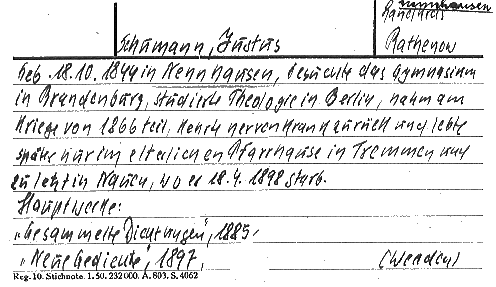 Nennhausen
Landkreis
Schumann, Justus
Rathenow
Geb. 18.10.1844 in Nennhausen, besuchte das Gymnasium
in Brandenburg, studierte Theologie in Berlin, nahm am
Kriege von 1866 teil, kehrte nervenkrank zurück und lebte
später nur im elterlichen Pfarrhause in Tremmen und
zuletzt in Nauen, wo er 18.4.1898 starb.
Hauptwerke:
"Gesammelte Dichtungen", 1885.
"Neue Gedichte", 1897.
Reg. 10. Stichnote. 1. 50. 232000. A. 803. S. 4062